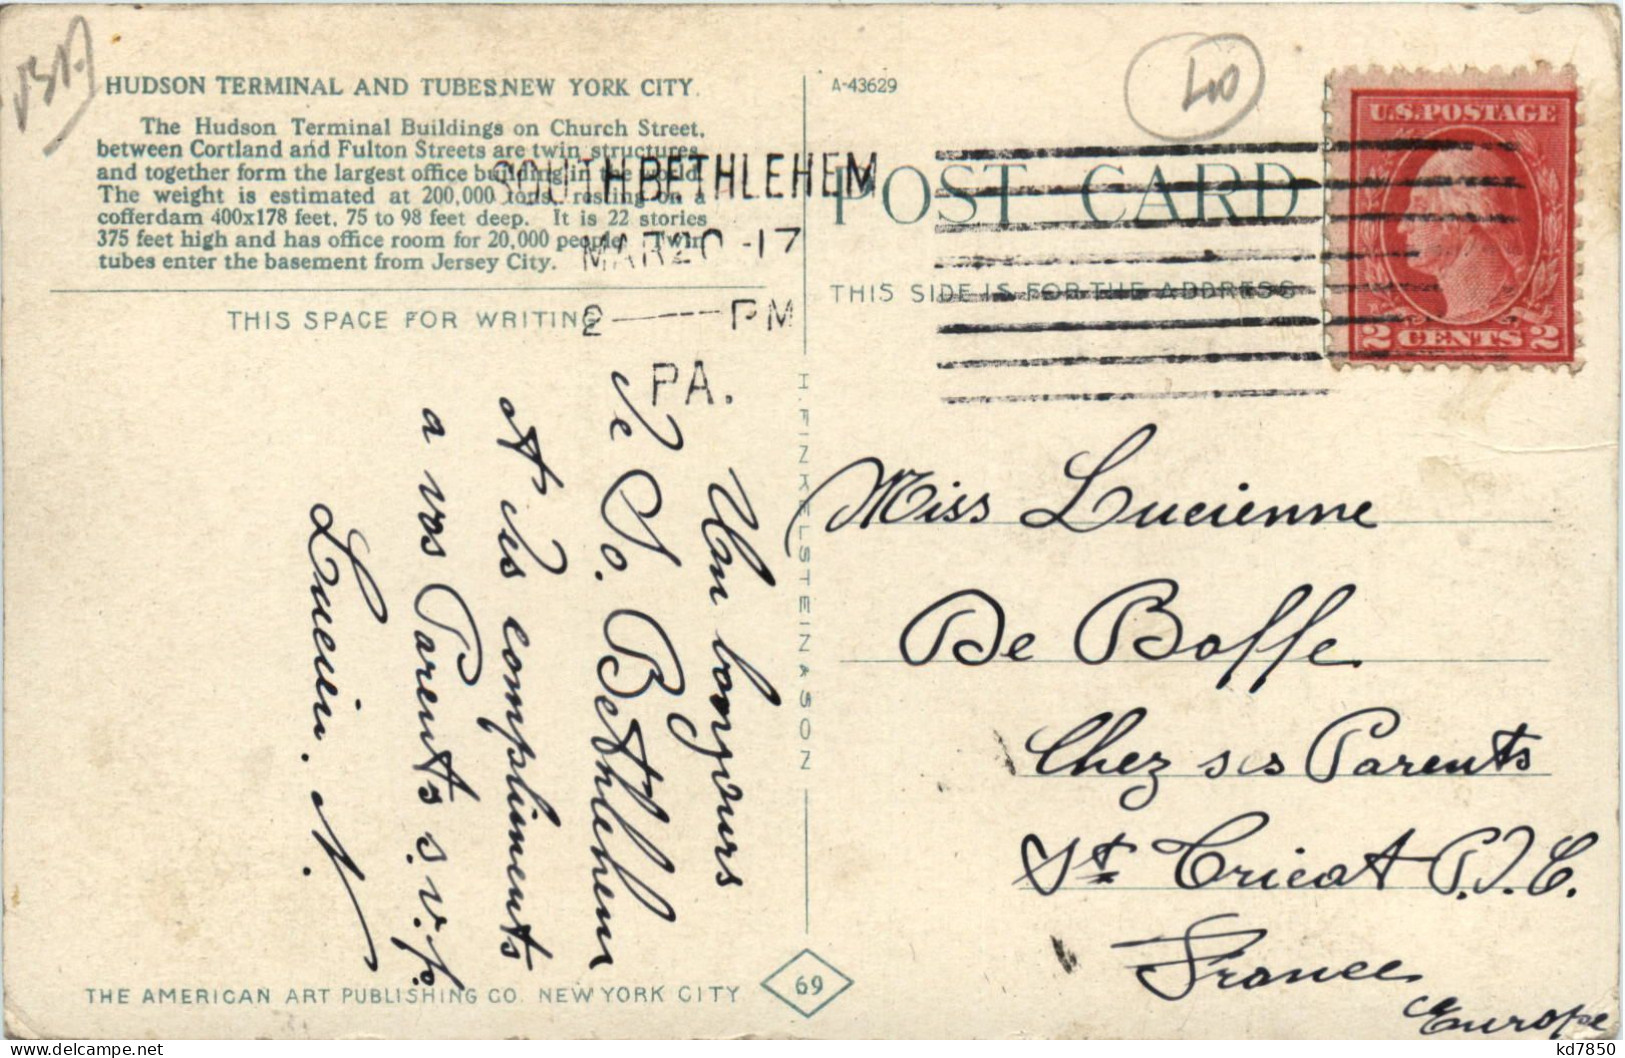 HUDSON TERMINAL AND TUBES NEW YORK CITY.
The Hudson Terminal Buildings on Church Street,
between Cortland and Fulton Streets are twin structures
and together form the largest office building in the world.
The weight is estimated at 200,000 tons, resting on a
cofferdam 400x178 feet, 75 to 98 feet deep. It is 22 stories
375 feet high and has office room for 20,000 people. Twin
tubes enter the basement from Jersey City.
THIS SPACE FOR WRITING
SOUTH BETHLEHEM
MAR 20 -17
2 PM
PA.
A-43629
POST CARD
THIS SIDE IS FOR THE ADDRESS
U.S. POSTAGE
2 CENTS 2
H. FINKELSTEIN & SON
Un bonjours
de So. Bethlehem
et ses compliments
a vos Parents s.v.p.
Lucien. N.
Miss Lucienne
De Boffe
Chez ses Parents
St Cricat
France
Europe
THE AMERICAN ART PUBLISHING CO. NEW YORK CITY
69
kd7850